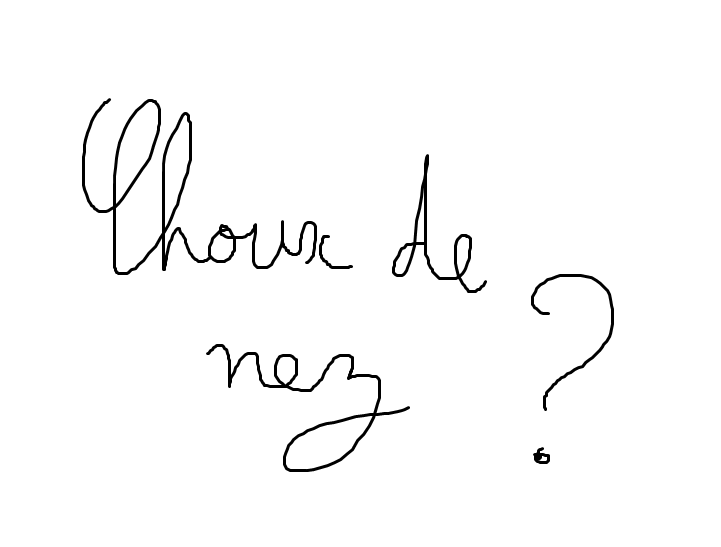 Choux de
nez ?